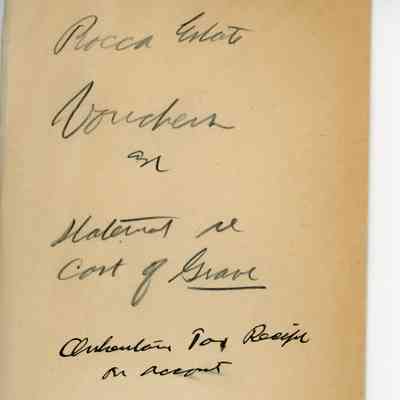 Rocca Estate
Vouchers
on
Statement re
Cost of Grave
Inheritance Tax Receipt
on account